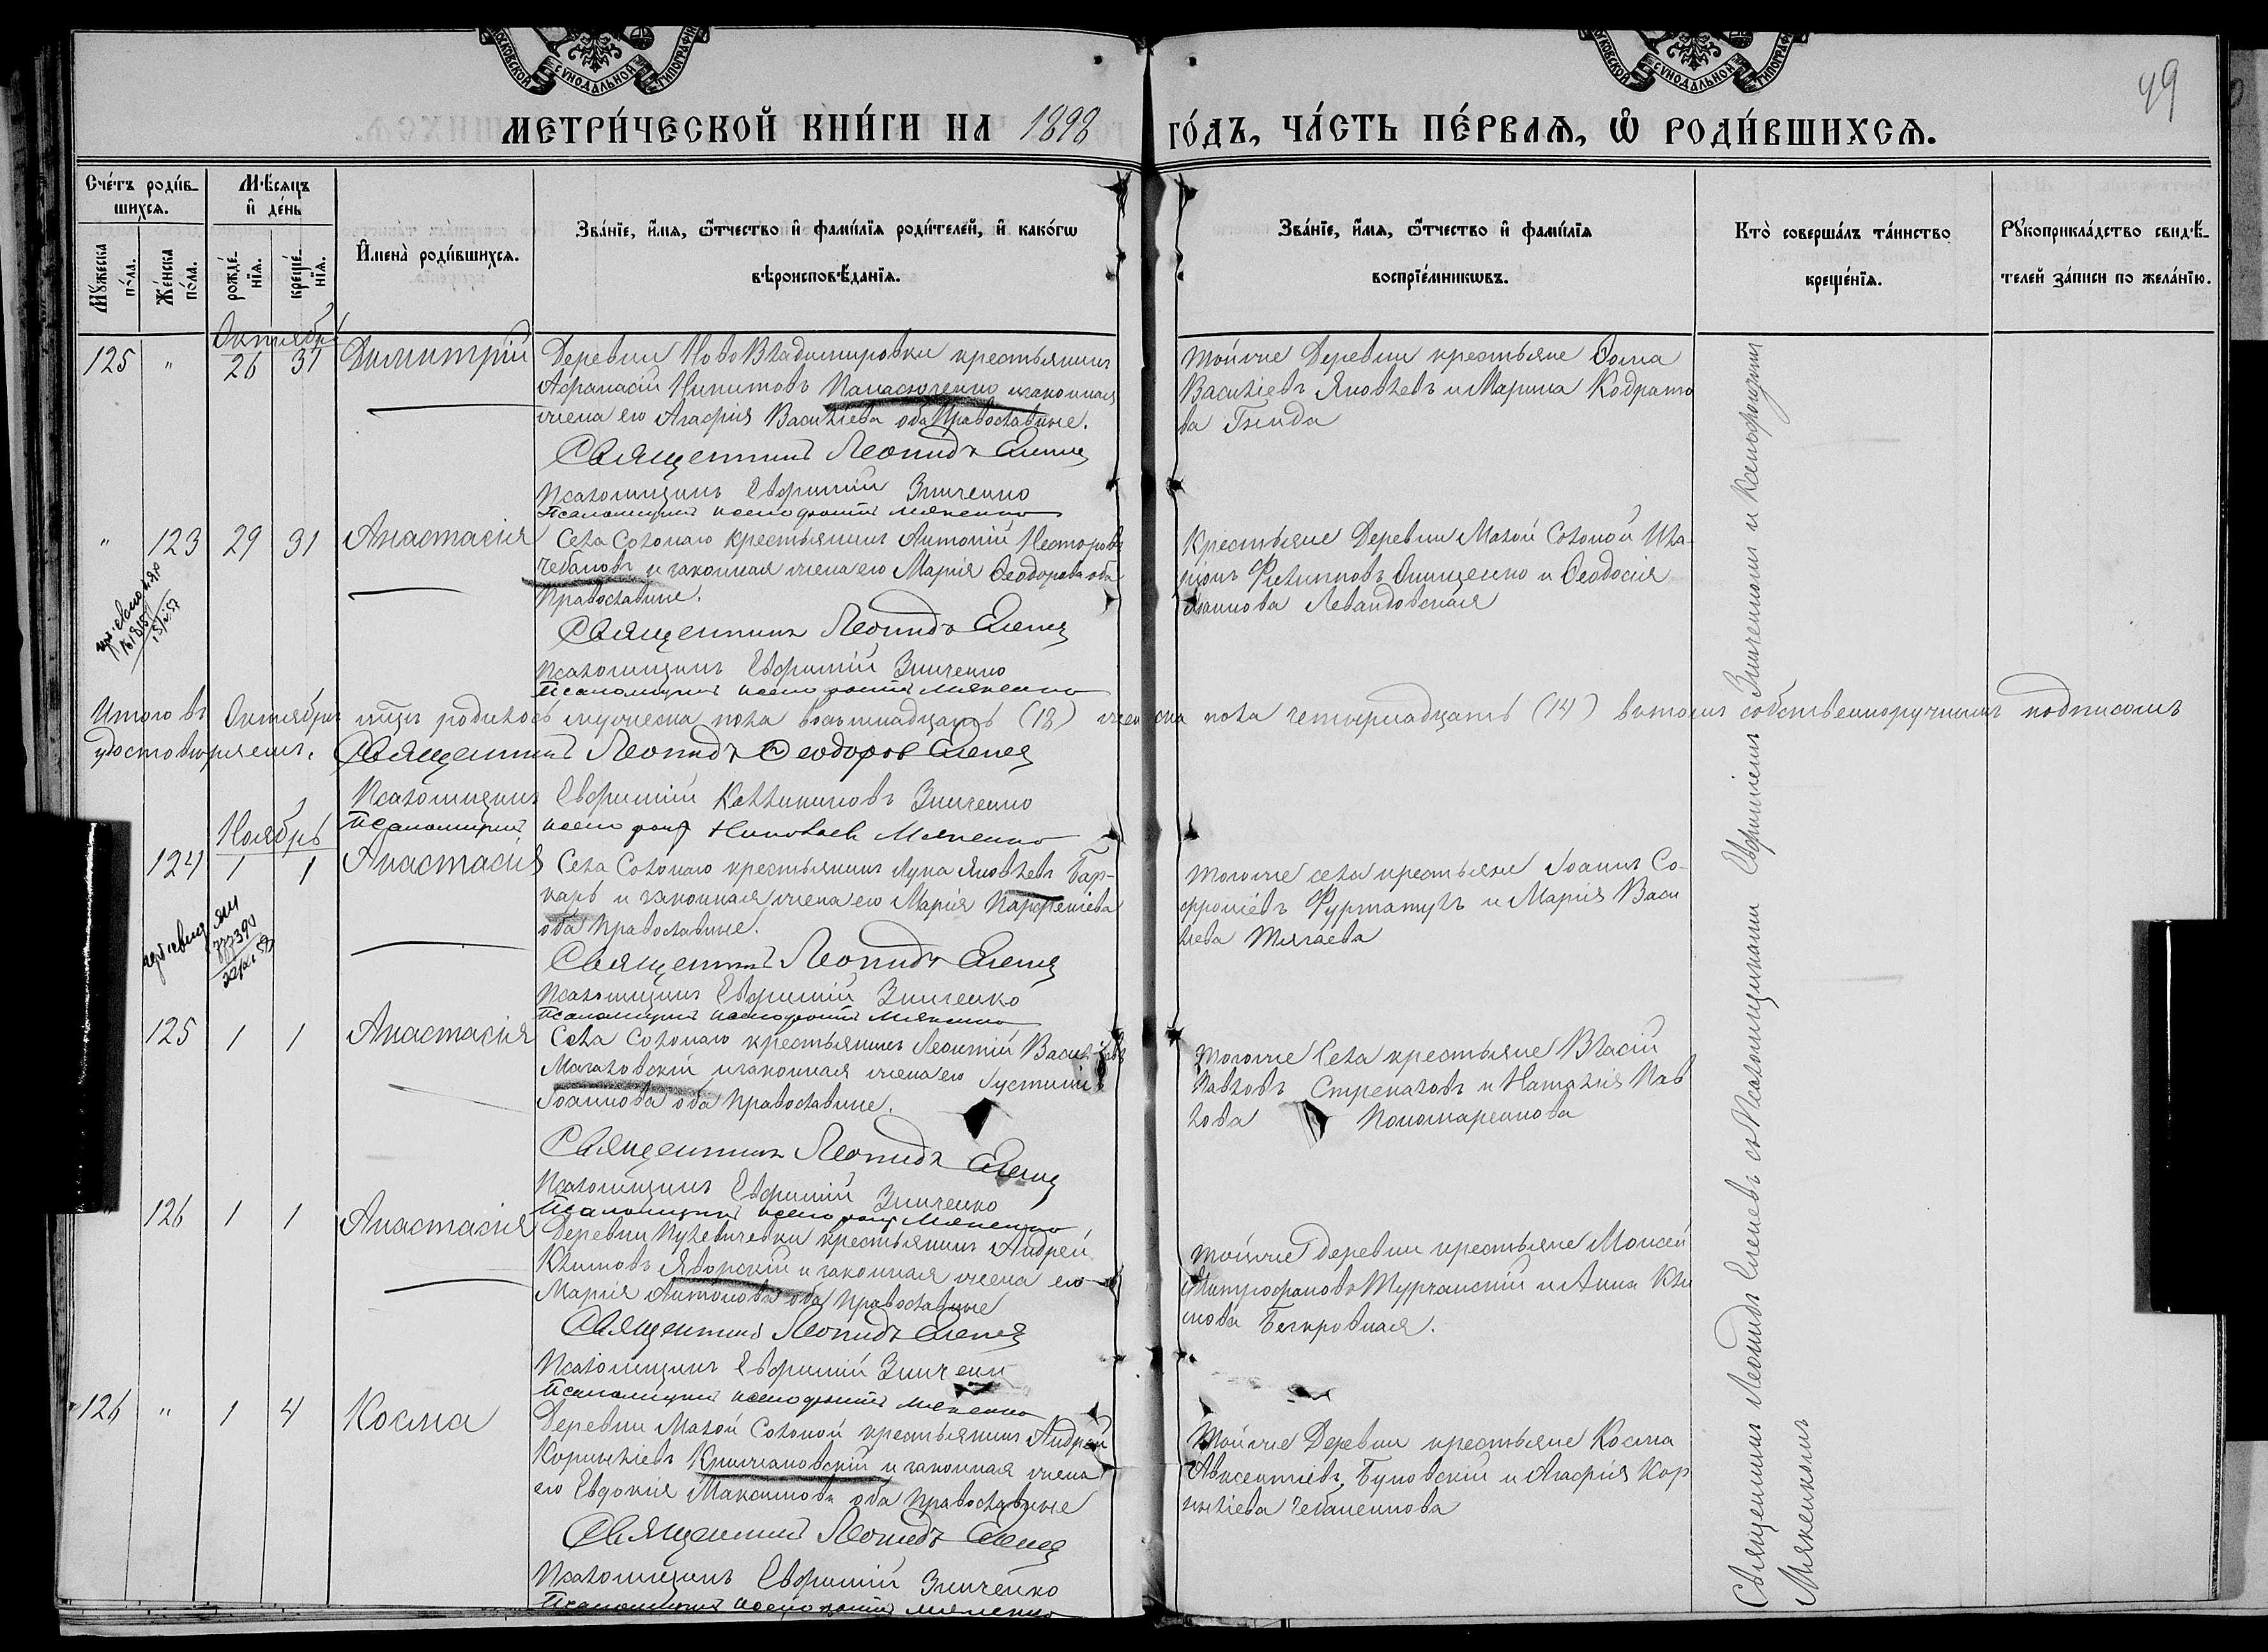 МОСКОВСКОЙ СѴНОДАЛЬНОЙ ТИПОГРАФІИ
МОСКОВСКОЙ СѴНОДАЛЬНОЙ ТИПОГРАФІИ
49
МЕТРИ́ЧЕСКОЙ КНИ́ГИ НА 1898 ГО́ДЪ, ЧА́СТЬ ПЕ́РВАѦ, Ѡ҆ РОДИ́ВШИХСѦ.
Сче́тъ роди́в-
шихсѧ.
Мꙋ́жеска по́ла.
Же́нска по́ла.
Мѣ́сѧцъ
и҆ де́нь
рожде́-
нїѧ.
креще́-
нїѧ.
И҆мена̀ роди́вшихсѧ.
Зва́нїе, и҆́мѧ, ѻ҆́тчество и҆ фами́лїѧ роди́телей, и҆ како́гѡ
вѣроисповѣ́данїѧ.
Зва́нїе, и҆́мѧ, ѻ҆́тчество и҆ фами́лїѧ
воспрїе́мникѡвъ.
Кто̀ соверша́лъ та́инство
креще́нїѧ.
Рꙋкоприкла́дство свидѣ́-
телей за́писи по жела́нїю.
Октябрь
125 " 26 31 Димитрій Деревни НовоВладимировки крестьянинъ
Афанасій Никитовъ Панасюченко и законная
жена его Агафія Васильева оба Православные.
Священникъ Леонидъ Еленев
Псаломщикъ Евфимій Зинченко
Псаломщикъ Ксенофонтъ Мякенко
Тойже Деревни крестьяне Ѳома
Васильевъ Яковлевъ и Марина Кодрато
ва
" 123 29 31 Анастасія Села Солонаго крестьянинъ Антоній Несторовъ
Чебановъ и законная жена его Марія Ѳеодорова оба
Православные.
Священникъ Леонидъ Еленев
Псаломщикъ Евфимій Зинченко
Псаломщикъ Ксенофонтъ Мякенко
Крестьяне Деревни Малой Солоной Ила-
ріонъ Филипповъ Онищенко и Ѳеодосія
Іоаннова Левандовская
Итого въ Октябрѣ м-цѣ родилось мужеска пола восьмнадцать (18) женска пола четырнадцать (14) въ томъ собственноручнымъ подписомъ
удостовѣряемъ. Священникъ Леонидъ Ѳеодоров Еленев
Псаломщикъ Евфимій Каллиниковъ Зинченко
Псаломщикъ Ксенофонт Николаев Мякенко
Ноябрь
124 1 1 Анастасія Села Солонаго крестьянинъ Лука Яковлевъ Бар-
карь и законная жена его Марія Парфеніева
оба Православные.
Священникъ Леонидъ Еленев
Псаломщикъ Евфимій Зинченко
Псаломщикъ Ксенофонтъ Мякенко
Тогоже села крестьяне Іоаннъ Со-
фроніевъ Фурматулъ и Марія Васи
льева
125 1 1 Анастасія Села Солонаго крестьянинъ Леонтій Васильевъ
Магаловскій и законная жена его Іустинія
Іоаннова оба Православные.
Священникъ Леонидъ Еленев
Псаломщикъ Евфимій Зинченко
Псаломщикъ Ксенофонт Мякенко
Тогоже Села крестьяне Власій
Павловъ Стрекаловъ и Наталія Пав
лова Пономаренкова
126 1 1 Анастасія Деревни Пулевичевки крестьянинъ Андрей
Климовъ Яворскій и законная жена его
Марія Антонова оба Православные
Священникъ Леонидъ Еленев
Псаломщикъ Евфимій Зинченко
Псаломщикъ Ксенофонтъ Мякенко
Тойже Деревни крестьяне Моисей
Митрофановъ Турчанскій и Анна Кли
мова Безкровная.
126 " 1 4 Косма Деревни Малой Солоной крестьянинъ Андрей
Корниліевъ Кришчановскій и законная жена
его Евдокія Максимова оба Православные
Священникъ Леонидъ Еленев
Псаломщикъ Евфимій Зинченко
Псаломщикъ Ксенофонтъ Мякенко
Тойже Деревни крестьяне Косма
Авксентіевъ Буковскій и Агафія Кор
ниліева Чебаненкова
Священникъ Леонидъ Еленевъ съ Псаломщиками Евфиміемъ Зинченкомъ и Ксенофонтомъ
Мякенкомъ